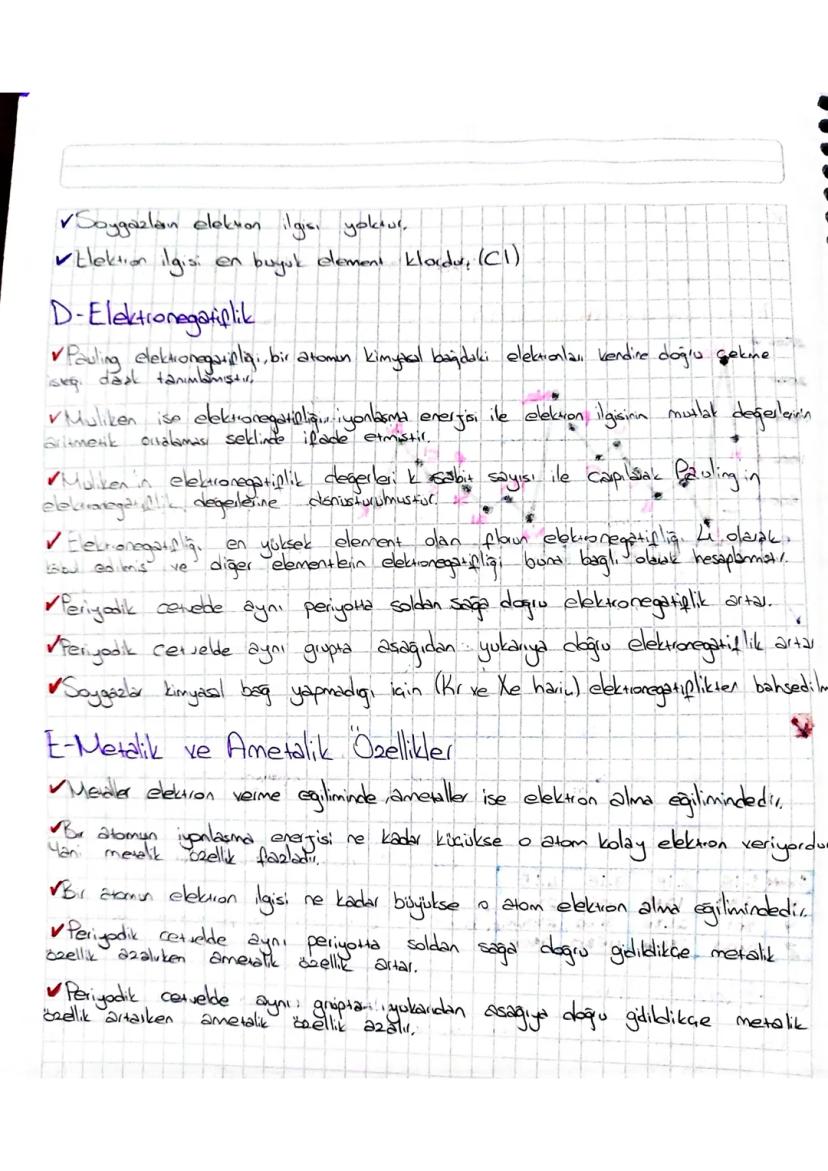 ✓Soygazların elektron ilgisi yoktur.
✓Elektron ilgisi en büyük element klordur. (Cl)
D-Elektronegatiflik
✓Pauling elektronegatifliği, bir atomun kimyasal bağdaki elektronları kendine doğru çekme
isteği olarak tanımlamıştır.
✓Muliken ise elektronegatifliği, iyonlaşma enerjisi ile elektron ilgisinin mutlak değerlerinin
aritmetik ortalaması şeklinde ifade etmiştir.
✓Muliken'in elektronegatiflik değerleri k sabit sayısı ile çarpılarak Pauling'in
elektronegatiflik değerlerine dönüştürülmüştür.
✓Elektronegatifliği en yüksek element olan florun elektronegatifliği 4 olarak
kabul edilmiş ve diğer elementlerin elektronegatifliği buna bağlı olarak hesaplanmıştır.
✓Periyodik cetvelde aynı periyotta soldan sağa doğru elektronegatiflik artar.
✓Periyodik cetvelde aynı grupta aşağıdan yukarıya doğru elektronegatiflik artar
✓Soygazlar kimyasal bağ yapmadığı için (Kr ve Xe hariç) elektronegatiflikten bahsedilm
E-Metalik ve Ametalik Özellikler
✓Metaller elektron verme eğiliminde, ametaller ise elektron alma eğilimindedir.
✓Bir atomun iyonlaşma enerjisi ne kadar küçükse o atom kolay elektron veriyordu
Yani metalik özellik fazladır.
✓Bir atomun elektron ilgisi ne kadar büyükse o atom elektron alma eğilimindedir.
✓Periyodik cetvelde aynı periyotta soldan sağa doğru gidildikçe metalik
özellik azalırken ametalik özellik artar.
✓Periyodik cetvelde aynı grupta yukarıdan aşağıya doğru gidildikçe metalik
özellik artarken ametalik özellik azalır.